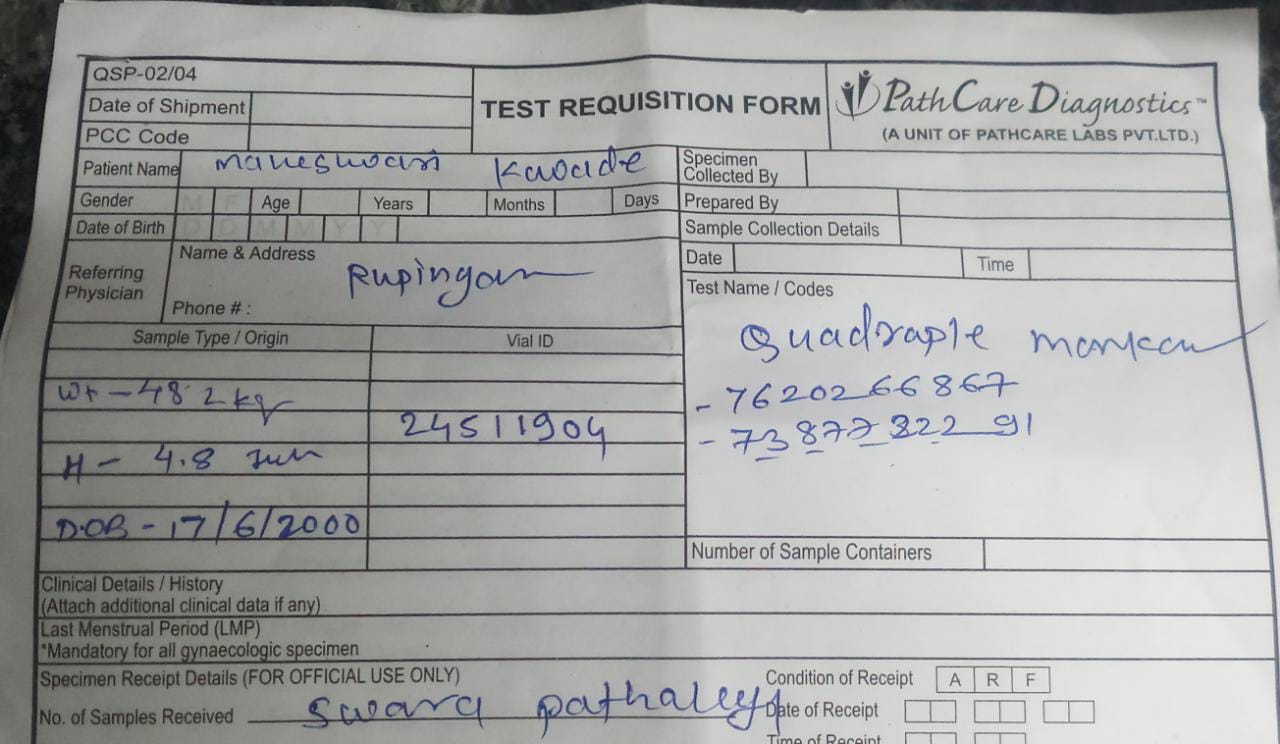 QSP-02/04
Date of Shipment
PCC Code
TEST REQUISITION FORM
PathCare Diagnostics™
(A UNIT OF PATHCARE LABS PVT.LTD.)
Patient Name Maheswari Kawade
Gender M F Age Years Months Days
Date of Birth D D M M Y Y
Referring Physician
Name & Address
Phone # :
Specimen Collected By
Prepared By
Sample Collection Details
Date Time
Test Name / Codes
Quadraple marker
- 7620266867
- 7387732291
Sample Type / Origin Vial ID
wt - 48.2 kg
24511904
H - 4.8
D.O.B - 17/6/2000
Number of Sample Containers
Clinical Details / History
(Attach additional clinical data if any)
Last Menstrual Period (LMP)
*Mandatory for all gynaecologic specimen
Specimen Receipt Details (FOR OFFICIAL USE ONLY)
No. of Samples Received Swara
Condition of Receipt A R F
Date of Receipt
Time of Receipt